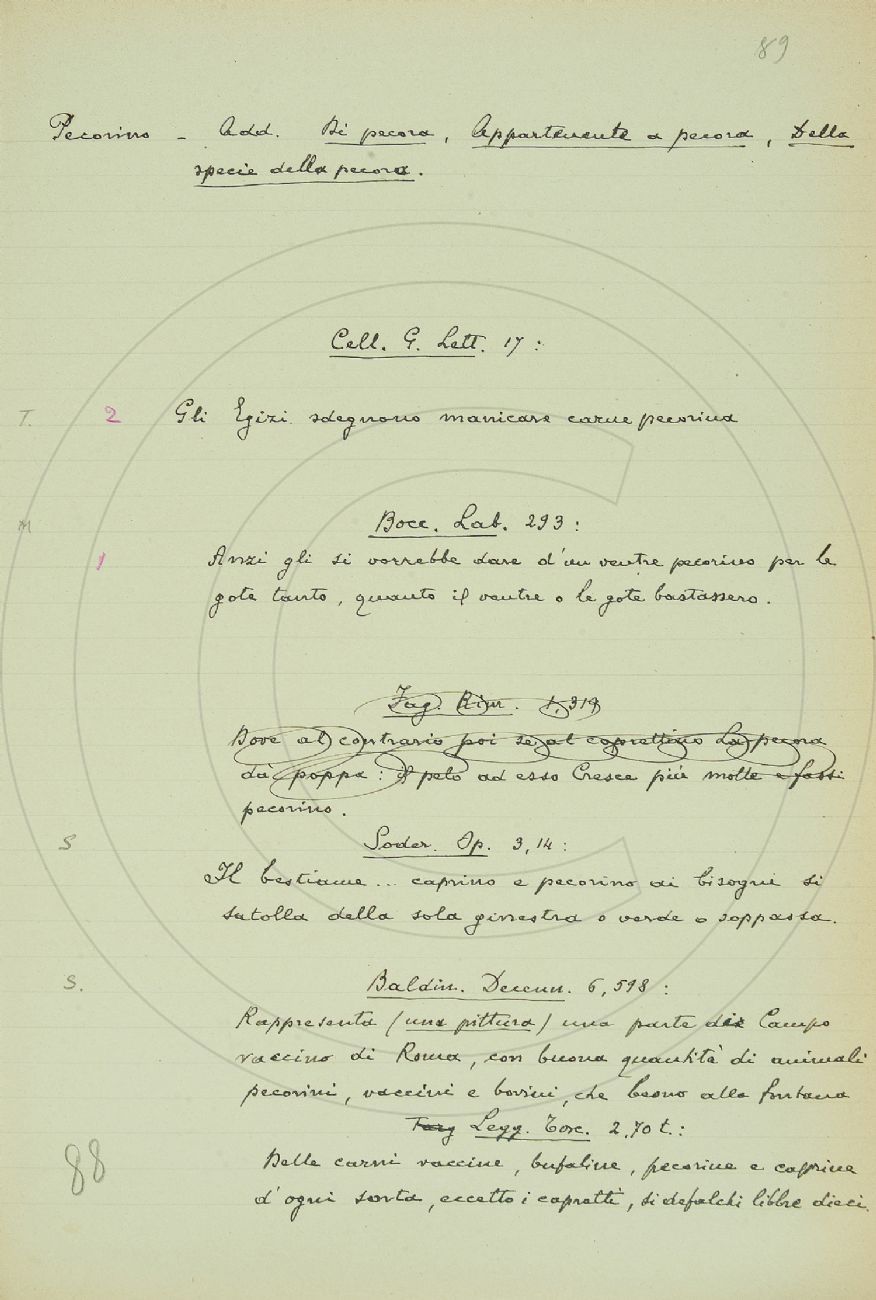 89
Pecorino - Add. Di pecora, Appartenente a pecora, Della
specie della pecora.
Cell. G. Lett. 17:
T. 2 Gli Egizi sdegnono manicare carne pecorina
M Bocc. Lab. 293:
1 Anzi gli si vorrebbe dare d'un ventre pecorino per le
gote tanto, quanto il ventre o le gote bastassero.
Fag. Rim. 1,319
Bove al contrario poi se al caprettino La pecora
dà poppa: il pelo ad esso Cresce più molle e fassi
pecorino.
S Soder. Op. 3,14:
Il bestiame... caprino e pecorino ai bisogni si
satolla della sola ginestra o verde o soppassa.
S. Baldin. Decenn. 6,598:
Rappresenta (una pittura) una parte di Campo
vaccino di Roma, con buona quantità di animali
pecorini, vaccini e bovini, che beono alla fontana
Legg. Tosc. 2,70 t.:
88 Delle carni vaccine, bufaline, pecorine e caprine
d'ogni sorta, eccetto i capretti, si defalchi libbre dieci.